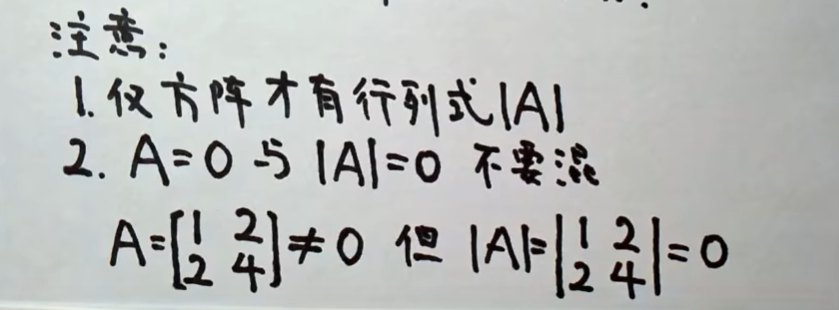 注意:
1. 仅方阵才有行列式|A|
2. A=0 与 |A|=0 不要混
A=[1 2; 2 4]≠0 但 |A|=|1 2; 2 4|=0